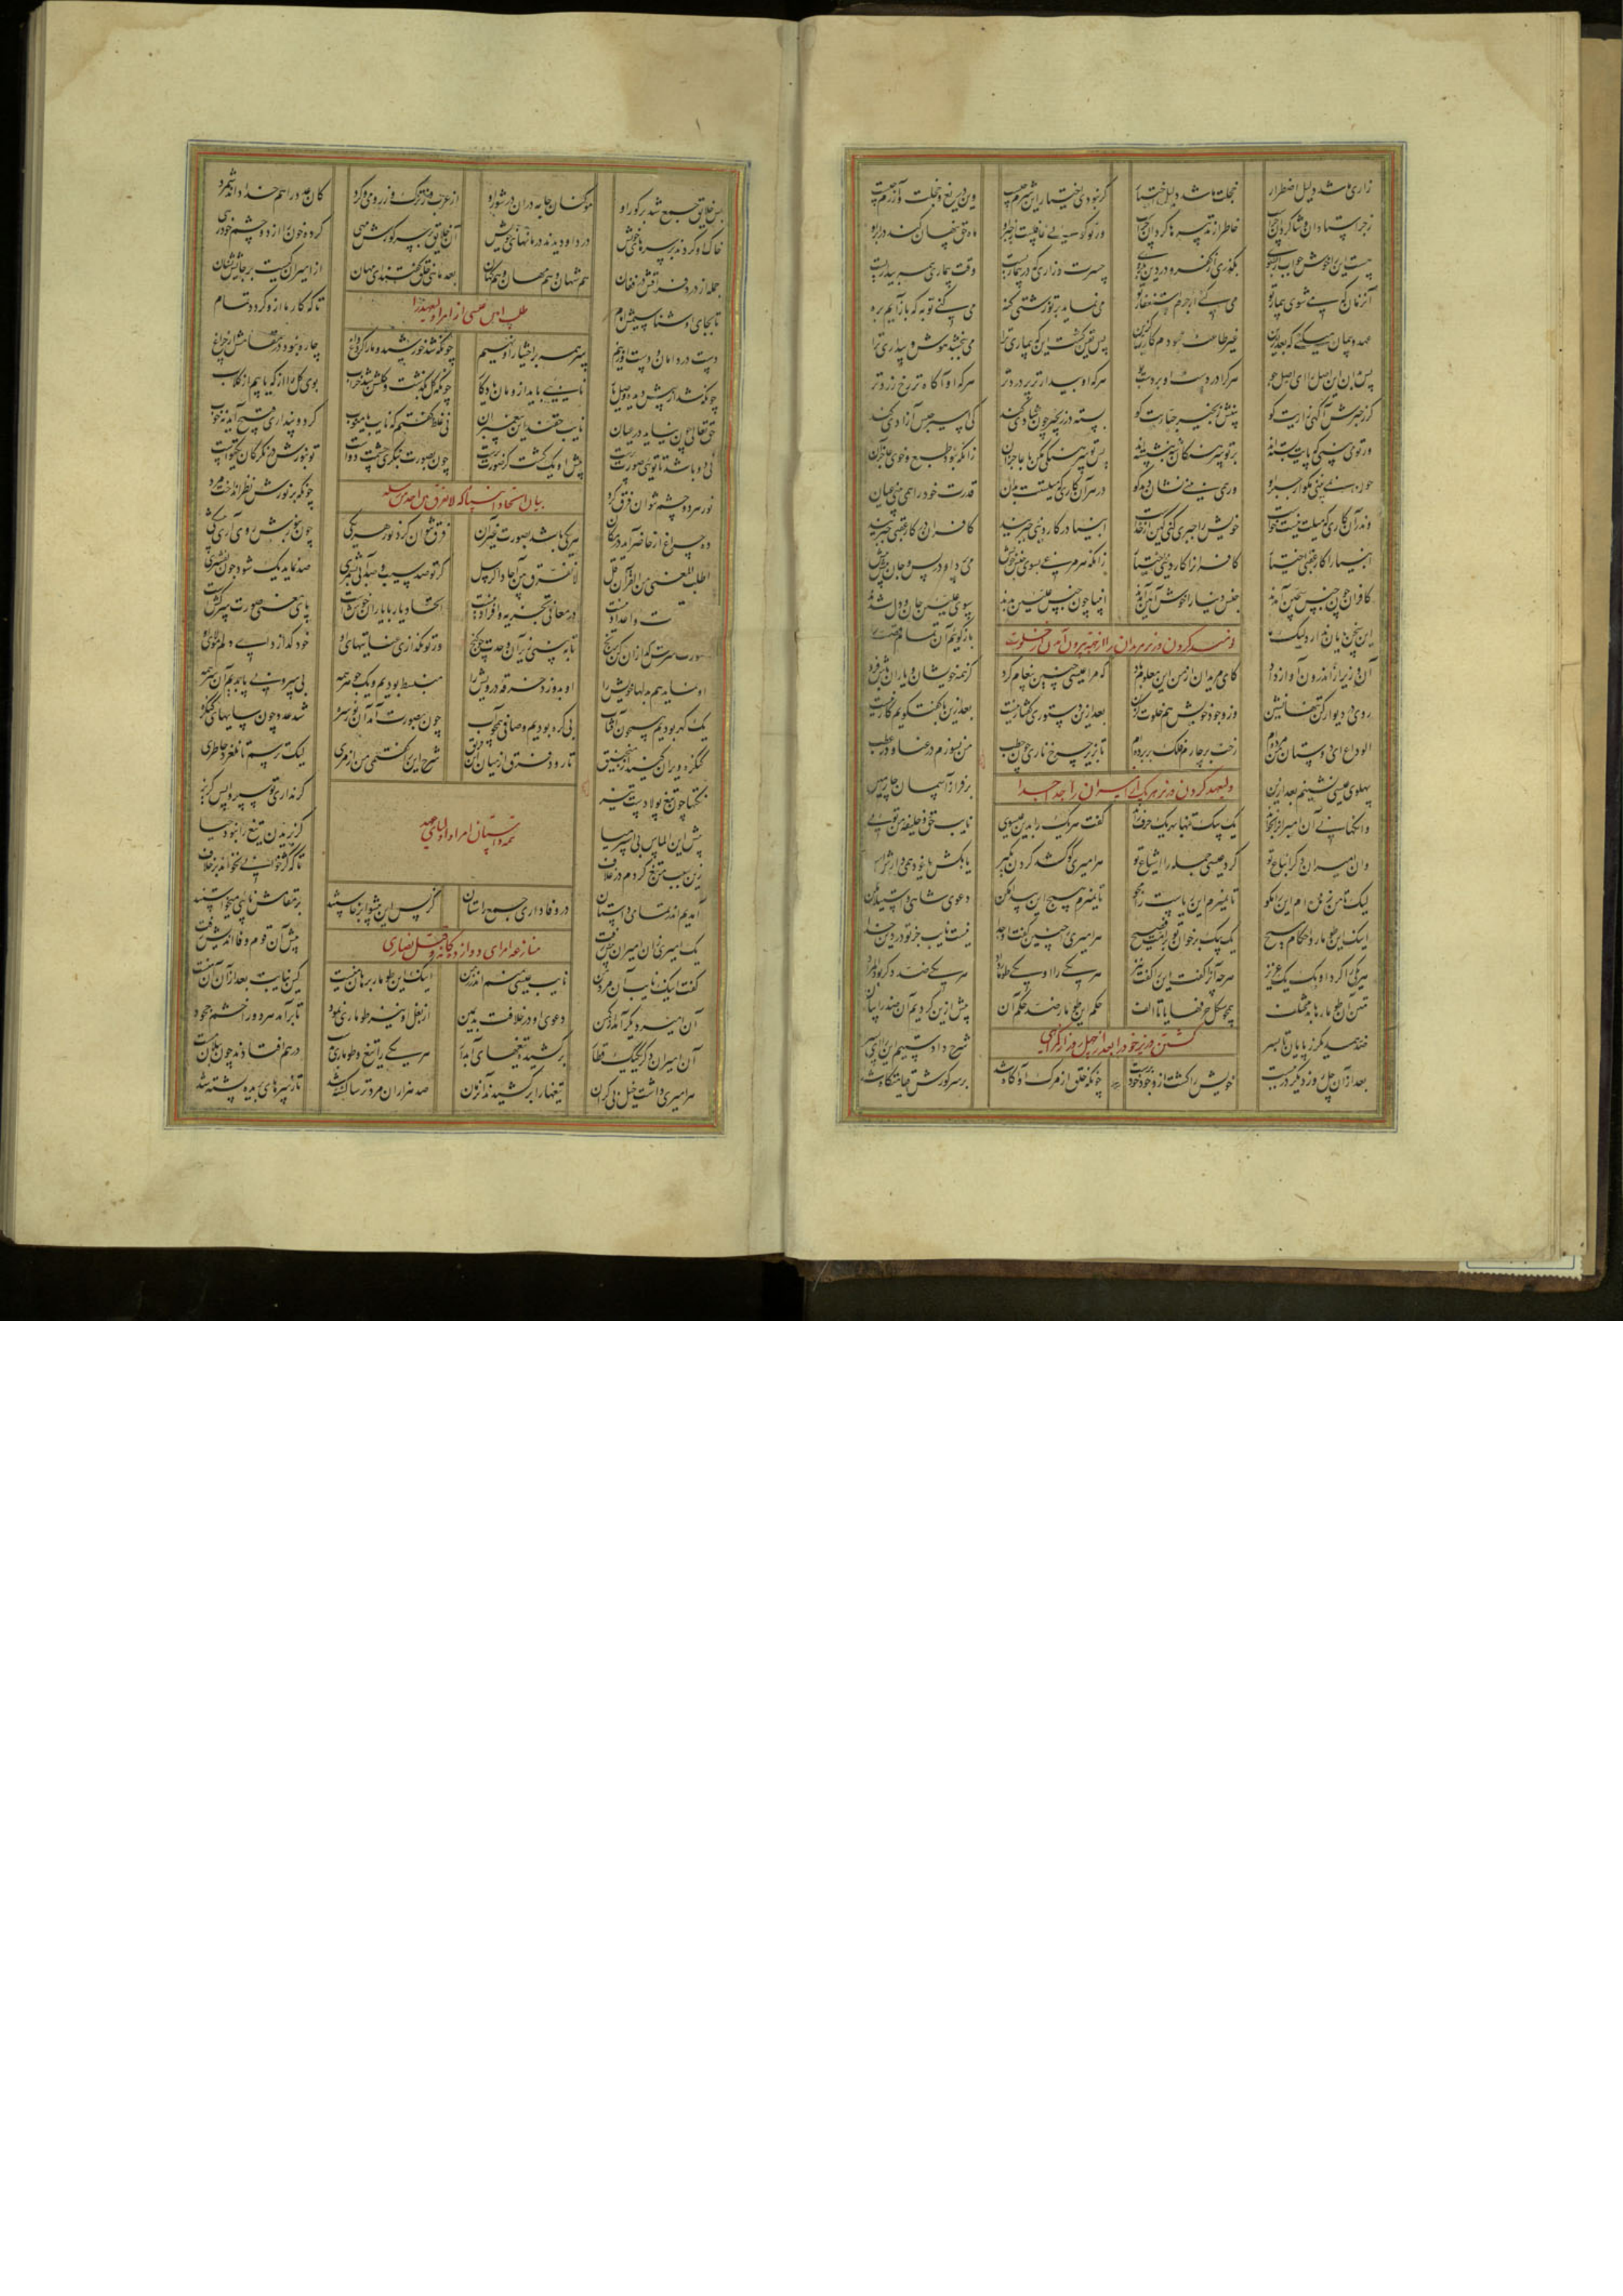 زاری باشد دلیل اضطرار خجلت باشد دلیل اختیار گر نبودی اختیار این شرم چیست وین دریغ و خجلت و آزرم چیست
زجر استادان و شاگردان چراست خاطر از تدبیرها گردان چراست ور تو گویی غافلست از جبر او ماه حق پنهان کند در ابر رو
هست این را خوش جواب ار بشنوی بگذری از کفر و در دین بگروی حسرت و زاری که در بیماریست وقت بیماری همه بیداریست
آن زمان که می شوی بیمار تو می کنی از جرم استغفار تو می نماید بر تو زشتی گنه می کنی توبه که باز آیم بره
عهد و پیمان میکنی که بعد ازین غیر طاعت نبودم کار گزین پس یقین گشت این که بیماری ترا می ببخشد هوش و بیداری ترا
پس بدان این اصل را ای اصل جو هر کرا دردست او بردست بو هر که او بیدارتر پر دردتر هر که او آگاه تر رخ زردتر
گر ز جبرش آگهی زاریت کو بینش زنجیر جباریت کو بسته در زنجیر چون شادی کند کی اسیر حبس آزادی کند
ور تو می بینی که پایت بسته اند بر تو سرهنگان شه بنشسته اند پس تو سرهنگی مکن با عاجزان زانکه نبود طبع و خوی عاجز آن
چون تو جبر او نمی بینی مگو ور همی بینی نشان دید کو در هر آن کاری که میلستت بدان قدرت خود را همی بینی عیان
وندر آن کاری که میلت نیست و خواست خویش را جبری کنی کین از خداست انبیا در کار دنیی جبریند کافران در کار عقبی جبریند
انبیا را کار عقبی اختیار کافران را کار دنیی اختیار زانکه هر مرغی بسوی جنس خویش می رود او در پس و جان پیش پیش
کافران چون جنس سجین آمدند سجن دنیا را خوش آیین آمدند انبیا چون جنس علیین بدند سوی علیین جان و دل شدند
این سخن پایان ندارد لیک ما بازگوییم آن تمام قصه را
نومید کردن وزیر مریدان را از خبر بیرون آمدن از خلوت
آن وزیر از اندرون آواز داد کای مریدان از من این معلوم باد که مرا عیسی چنین پیغام کرد کز همه خویشان و یاران باش فرد
روی در دیوار کن تنها نشین وز وجود خویش هم خلوت گزین بعد ازین دستوری گفتار نیست بعد ازین با گفت و گویم کار نیست
الوداع ای دوستان من مرده ام رخت بر چارم فلک بر برده ام تا بزیر چرخ ناری چون حطب من نسوزم در عنا و در عطب
پهلوی عیسی نشینم بعد ازین بر فراز آسمان چارمین
ولیعهد کردن وزیر هر یک از امیران را جدا جدا
وانگهانی آن امیران را بخواند یک بیک تنها بهر یک حرف راند گفت هر یک را بدین عیسوی نایب حق و خلیفه من توی
وان امیران دگر اتباع تو کرد عیسی جمله را اشیاع تو هر امیری کو کشد گردن بگیر یا بکش یا خود همی دارش اسیر
لیک تا من زنده ام این وا مگو تا نمیرم این ریاست را مجو تا نمیرم من تو این پیدا مکن دعوی شاهی و استیلا مکن
اینک این طومار و احکام مسیح یک بیک بر خوان تو بر امت فصیح هر امیری را چنین گفت او جدا نیست نایب جز تو در دین خدا
هر یکی را کرد او یک یک عزیز هر چه آنرا گفت این را گفت نیز هر یکی را او یکی طومار داد هر یکی ضد دگر بود المراد
متن آن طومارها بد مختلف همچو شکل حرفها یا تا الف حکم این طومار ضد حکم آن پیش ازین کردیم آن ضد را بیان
ضد همدیگر ز پایان تا بسر شرح دادستیم این را ای پسر
کشتن وزیر خود را بعد از چهل روز از گمرهی
بعد از آن چل روز دیگر در ببست خویش را کشت از وجود خود برست چونکه خلق از مرگ او آگاه شد بر سر گورش قیامتگاه شد
بس خلایق جمع شد بر گور او موکنان جامه دران در شور او از عرب وز ترک وز رومی و کرد کان عدد را هم خدا داند شمرد
خاک او کردند بر سرهای خویش درد او دیدند درمانهای خویش آن خلایق بر سر گورش مهی کرده خون را از دو چشم خود رهی
جمله از درد فراقش در فغان هم شهان و هم مهان و هم کهان بعد ماهی خلق گفتند ای مهان از امیران کیست بر جایش نشان
تا بجای او شناسیمش امام تا که کار ما ازو گردد تمام
طلب امت عیسی از امرا ولیعهد را
دست در دامان و دست او زنیم سر همه بر اختیار او نهیم چونکه شد خورشید و ما را کرد داغ چاره نبود در مقامش از چراغ
چونکه شد از پیش دیده وصل یار نایبی باید ازو مان یادگار چونکه گل بگذشت و گلشن شد خراب بوی گل را از که یابیم از گلاب
حق تعالی چون نیاید در عیان نایب حقند این پیغمبران نی غلط گفتم که نایب با منوب گر دو پنداری قبیح آید نه خوب
نی دو باشد تا توی صورت پرست پیش او یک گشت کز صورت برست چون بصورت بنگری چشمت دو است تو بنورش در نگر کان یکتو است
نور هر دو چشم نتوان فرق کرد چونکه بر نورش نظر انداخت مرد
بیان اتحاد انبیا که لا نفرق بین احد من رسله
ده چراغ ار حاضر آید در مکان هر یکی باشد بصورت غیر آن فرق نتوان کرد نور هر یکی چون بنورش روی آری بی شکی
اطلب المعنی من القرآن قل لا نفرق بین آحاد الرسل گر تو صد سیب و صد آبی بشمری صد نماید یک شود چون بفشری
در معانی تجزیه و افراد نیست اتحاد یار با یاران خوش است پای معنی گیر صورت سرکش است
صورت سرکش گدازان کن برنج تا ببینی زیر آن وحدت چو گنج ور تو نگدازی عنایتهای او خود گدازد ای دلم مولای او
او نماید هم بدلها خویش را او بدوزد خرقه درویش را منبسط بودیم و یک جوهر همه بی سر و بی پا بدیم آن سر همه
یک گهر بودیم همچون آفتاب بی گره بودیم و صافی همچو آب چون بصورت آمد آن نور سره شد عدد چون سایهای کنگره
کنگره ویران کنید از منجنیق تا رود فرق از میان این فریق شرح این را گفتمی من از مری لیک ترسم تا نلغزد خاطری
نکتها چون تیغ پولادست تیز گر نداری تو سپر واپس گریز
پیش این الماس بی اسپر میا کز بریدن تیغ را نبود حیا
زین سبب من تیغ کردم در غلاف تا که کژ خوانی نخواند بر خلاف
آمدیم اندر تمامی داستان در وفاداری جمع راستان کز پس این پیشوا بر خاستند بر مقامش نایبی میخواستند
منازعه امرای دوازده گانه و قتل نصاری
یک امیری زان امیران پیش رفت پیش آن قوم وفا اندیش رفت
گفت اینک نایب آن مرد من نایب عیسی منم اندر زمن اینک این طومار برهان منست کین نیابت بعد ازو آن منست
آن امیر دیگر آمد از کمین دعوی او در خلافت بد همین از بغل او نیز طوماری نمود تا بر آمد هر دو را خشم جهود
آن امیران دگر یک یک قطار بر کشیده تیغهای آبدار هر یکی را تیغ و طوماری بدست درهم افتادند چون پیلان مست
هر امیری داشت خیل بی کران تیغها را بر کشیدند آن زمان صد هزاران مرد ترسا کشته شد تا ز سرهای بریده پشته شد